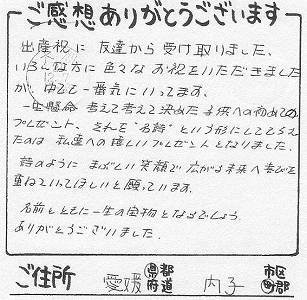 ご感想ありがとうございます
出産祝に 友達から 受け取りました、
いろいろな方に 色々な お祝をいただきました
が、中でも一番気にいっています。
一生懸命 考えて考えて決めた子供への初めての
プレゼント、それを"名詩"という形にしてもらえ
たのは 私達への嬉しいプレゼントとなりました。
詩のように まぶしい笑顔で 広がる未来へ歩びを
重ねていってほしいと願っています。
名前とともに一生の宝物となるでしょう。
ありがとうございました。
ご住所 愛媛 都道府県 内子 市区町郡